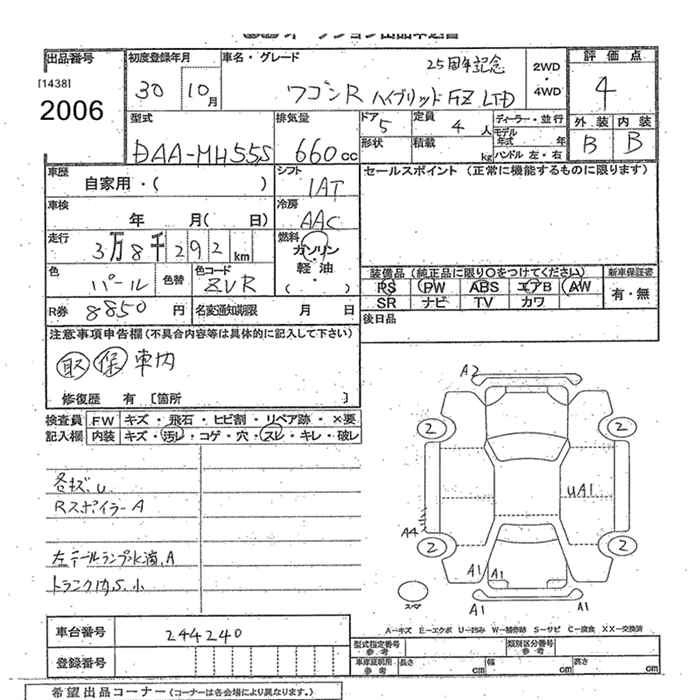 出品番号
[1438]
2006
初度登録年月
30 10月
車名・グレード
25周年記念
ワゴンR ハイブリッドFZ LTD
2WD
・
4WD
評価点
4
外装 内装
B B
型式
DAA-MH55S
排気量
660cc
ドア 5
形状
定員 4 人
積載 kg
ディーラー・並行
モデル年式 年
ハンドル 左・右
車歴
自家用・( )
シフト
IAT
セールスポイント (正常に機能するものに限ります)
車検
年 月( 日)
冷房
AAC
走行
3万8千292km
燃料
ガソリン
・
軽油
・
( )
色
パール
色替
色コード
ZVR
装備品(純正品に限り○をつけてください)
PS PW ABS エアB AW
SR ナビ TV カワ
新車保証書
有・無
R券 8850 円
名変通知期限 月 日
後日品
注意事項申告欄(不具合内容等は具体的に記入して下さい)
取 保 車内
修復歴 有 〔箇所 〕
検査員記入欄
FW キズ・飛石・ヒビ割・リペア跡・×要
内装 キズ・汚レ・コゲ・穴・スレ・キレ・破レ
各キズ.U
Rスポイラー A
左テールランプ水滴.A
トランク内.S.小
A2
2
2
UA1
A4
2
2
A1
A1
A1
A1
スペア
A-キズ E-エクボ U-凹み W-補修跡 S-サビ C-腐食 XX-交換済
車台番号
244240
登録番号
型式指定番号
参考
類別区分番号
参考
車庫証明用
参考
長さ cm
幅 cm
高さ cm
希望出品コーナー(コーナーは各会場により異なります。)